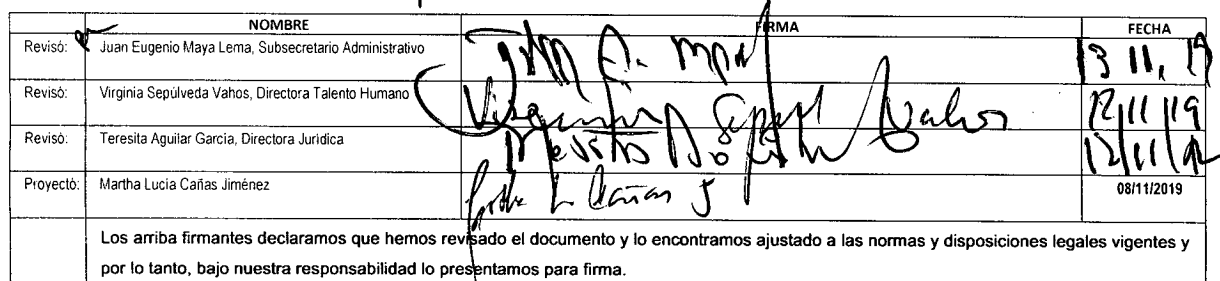 NOMBRE FIRMA FECHA
Revisó: Juan Eugenio Maya Lema, Subsecretario Administrativo 13 11, 19
Revisó: Virginia Sepúlveda Vahos, Directora Talento Humano Virginia Sepul Vahos 12/11/19
Revisó: Teresita Aguilar García, Directora Jurídica 12/11/
Proyectó: Martha Lucía Cañas Jiménez L Cañas J 08/11/2019
Los arriba firmantes declaramos que hemos revisado el documento y lo encontramos ajustado a las normas y disposiciones legales vigentes y
por lo tanto, bajo nuestra responsabilidad lo presentamos para firma.